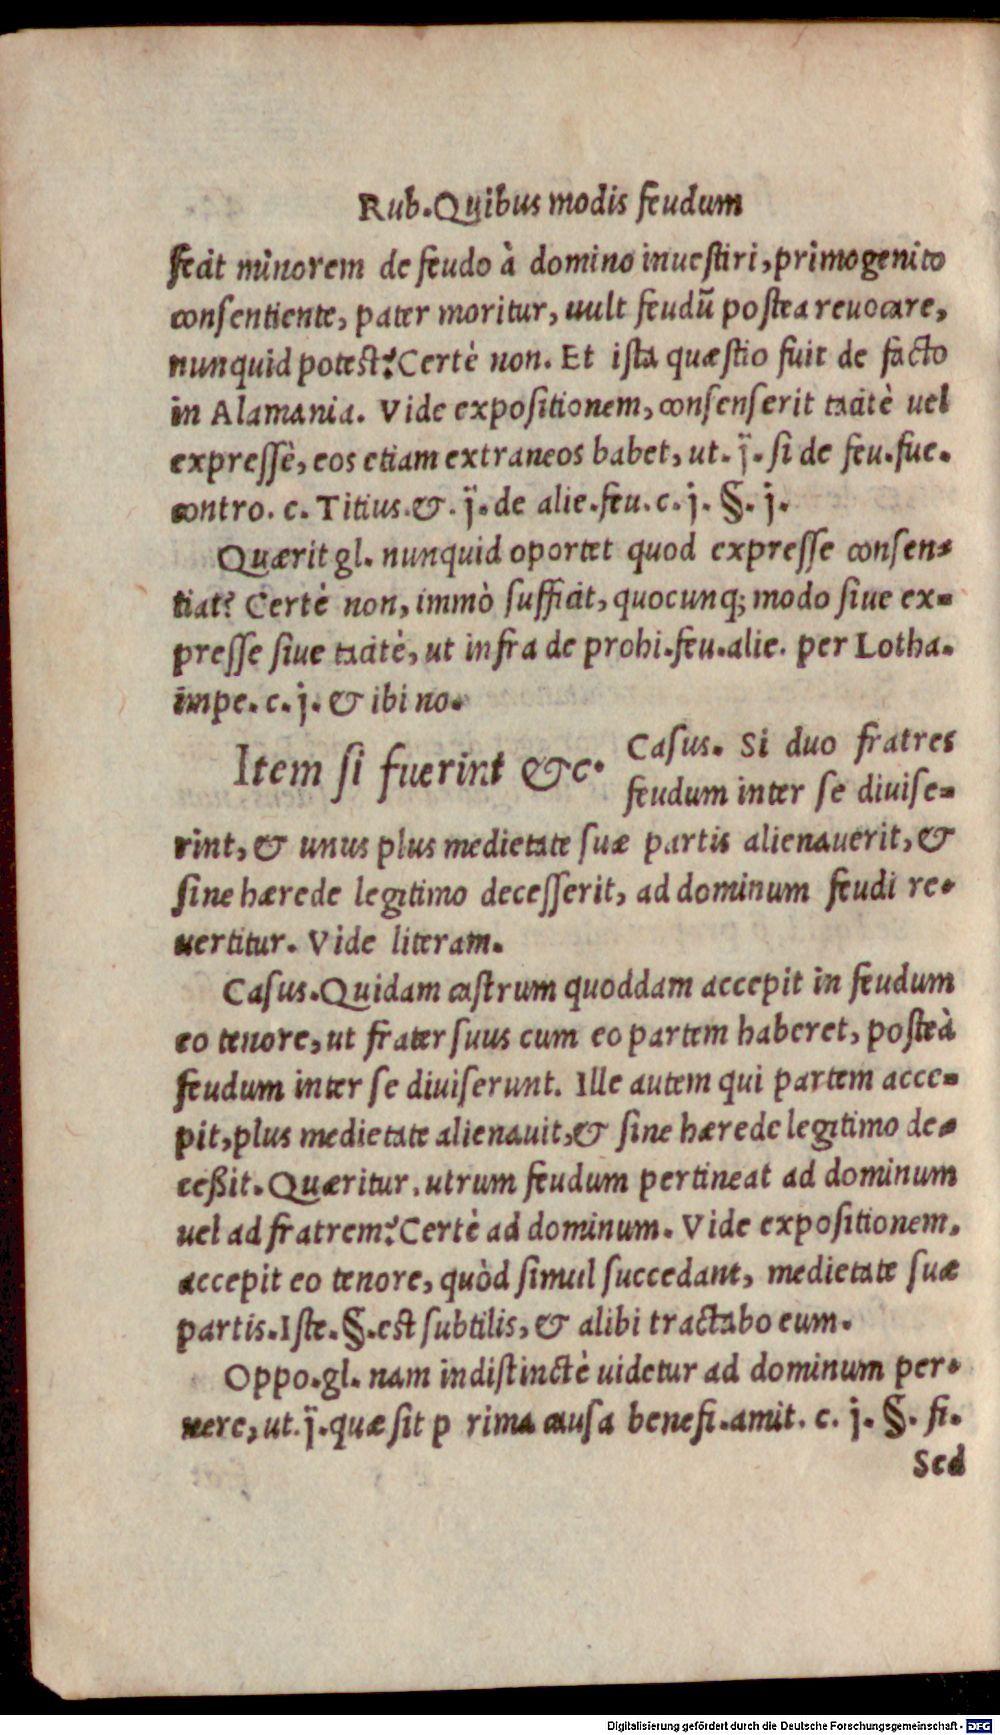 Rub. Quibus modis feudum
fecit minorem de feudo à domino inuestiri, primogenito
consentiente, pater moritur, uult feudũ postea reuocare,
nunquid potest? Certè non. Et ista quæstio fuit de facto
in Alamania. Vide expositionem, consenserit tacitè uel
expressè, eos etiam extraneos habet, ut. j̈. si de feu. fue.
contro. c. Titius. & . j̈. de alie. feu. c. j. §. j.
Quærit gl. nunquid oportet quod expresse consen-
tiat? Certè non, immò sufficit, quocunq; modo siue ex-
presse siue tacitè, ut infra de prohi. feu. alie. per Lotha.
impe. c. j. & ibi no.
Item si fuerint &c. Casus. Si duo fratres
feudum inter se diuise-
rint, & unus plus medietate suæ partis alienauerit, &
sine hærede legitimo decesserit, ad dominum feudi re-
uertitur. Vide literam.
Casus. Quidam castrum quoddam accepit in feudum
eo tenore, ut frater suus cum eo partem haberet, posteà
feudum inter se diuiserunt. Ille autem qui partem acce-
pit, plus medietate alienauit, & sine hærede legitimo de-
ceßit. Quæritur, utrum feudum pertineat ad dominum
uel ad fratrem? Certè ad dominum. Vide expositionem,
accepit eo tenore, quòd simul succedant, medietate suæ
partis. Iste. §. est subtilis, & alibi tractabo eum.
Oppo. gl. nam indistinctè uidetur ad dominum per-
uere, ut. j̈. quæ sit p rima causa benefi. amit. c. j. §. fi.
Sed
Digitalisierung gefördert durch die Deutsche Forschungsgemeinschaft - DFG